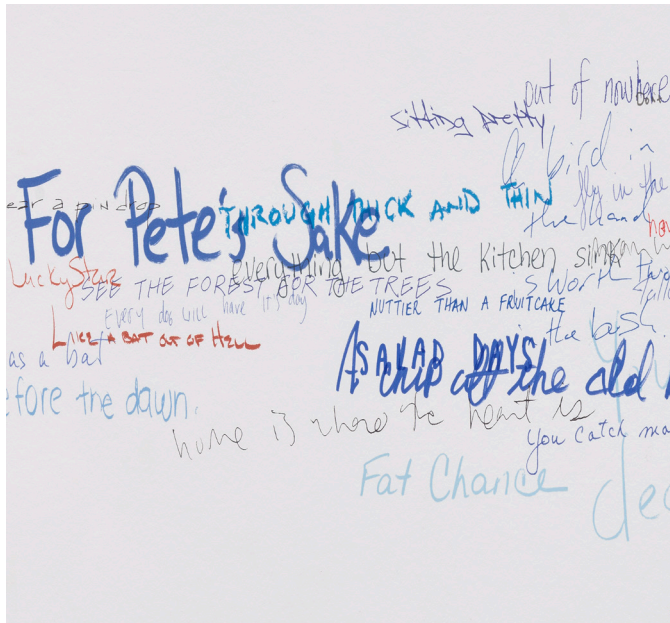 out of nowhere
sitting pretty
a bird in
fly in the
ear a pin drop
For Pete's Sake
THROUGH THICK AND THIN
the hand
everything but the kitchen sink
Lucky Star
SEE THE FOREST FOR THE TREES
is worth
Every dog will have it's day
NUTTIER THAN A FRUITCAKE
the bush
LIKE A BAT OUT OF HELL
as a bat
SALAD DAYS
A chip off the old
efore the dawn.
home is where the heart is
you catch
Fat Chance